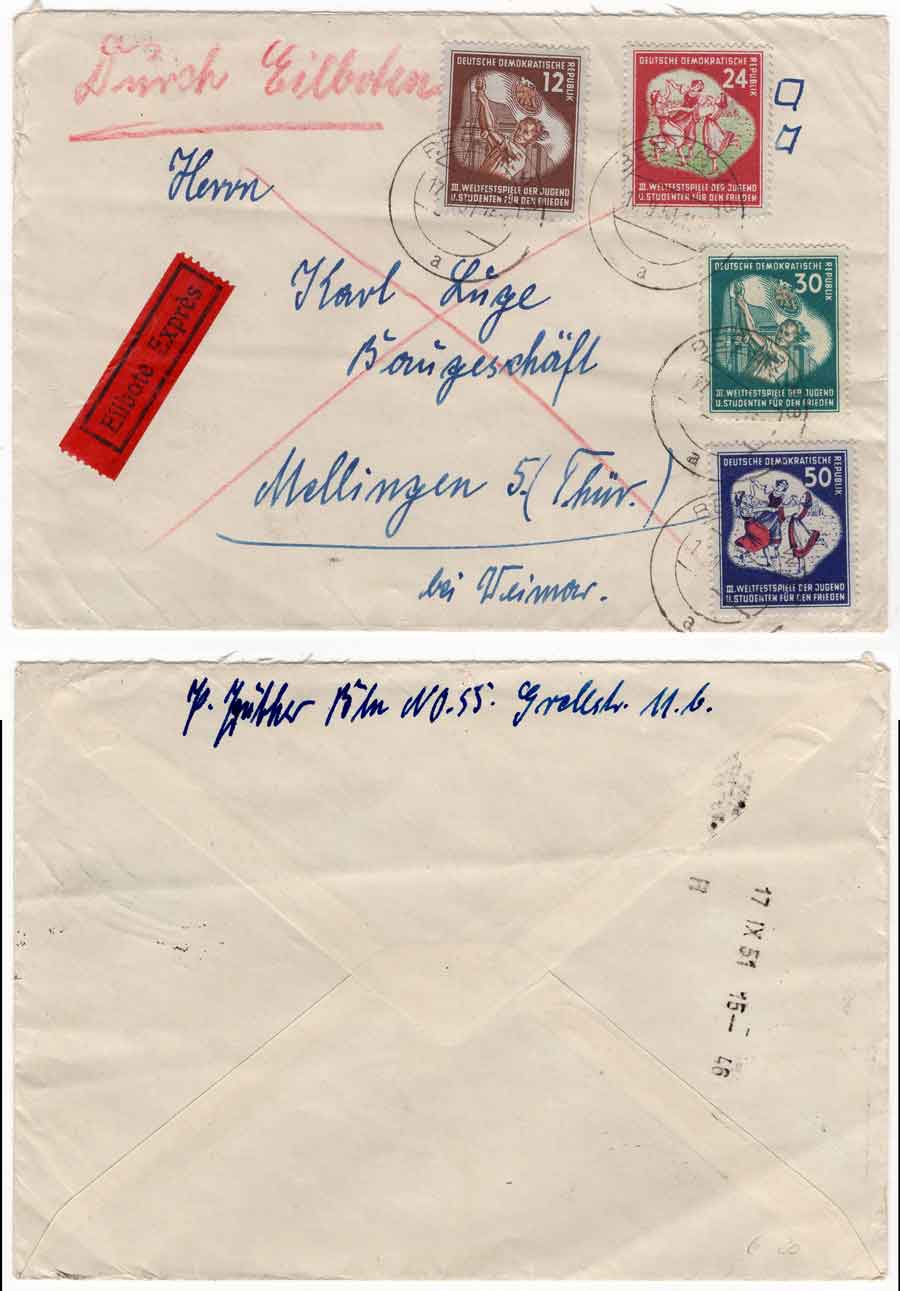 Durch Eilboten
DEUTSCHE DEMOKRATISCHE REPUBLIK
12
III. WELTFESTSPIELE DER JUGEND
U. STUDENTEN FÜR DEN FRIEDEN
DEUTSCHE DEMOKRATISCHE REPUBLIK
24
III. WELTFESTSPIELE DER JUGEND
U. STUDENTEN FÜR DEN FRIEDEN
a
a
Herrn
Eilbote Exprès
Karl Luge
Baugeschäft
DEUTSCHE DEMOKRATISCHE REPUBLIK
30
III. WELTFESTSPIELE DER JUGEND
U. STUDENTEN FÜR DEN FRIEDEN
a
Mellingen 5. (Thür.)
bei Weimar.
DEUTSCHE DEMOKRATISCHE REPUBLIK
50
III. WELTFESTSPIELE DER JUGEND
U. STUDENTEN FÜR DEN FRIEDEN
a
Bln NO.55. Grellstr. 11.b.
17 IX 51 15— 46